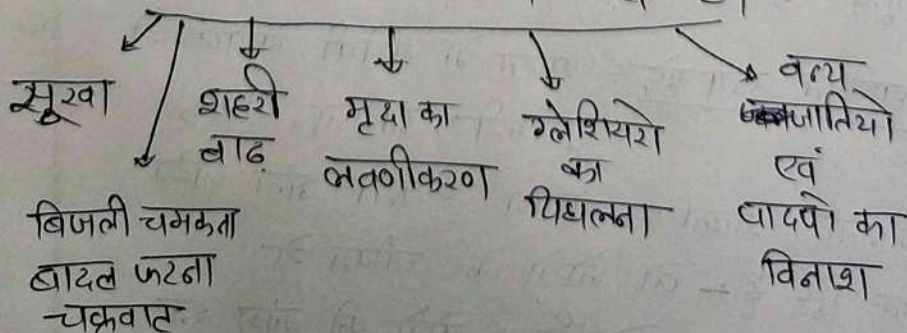 सूखा
बिजली चमकता
बादल फटना
चक्रवाट
शहरी
बाढ़
मृदा का
लवणीकरण
ग्लेशियरो
का
पिघलना
वन्य
जातियो
एवं
पादपो का
विनाश